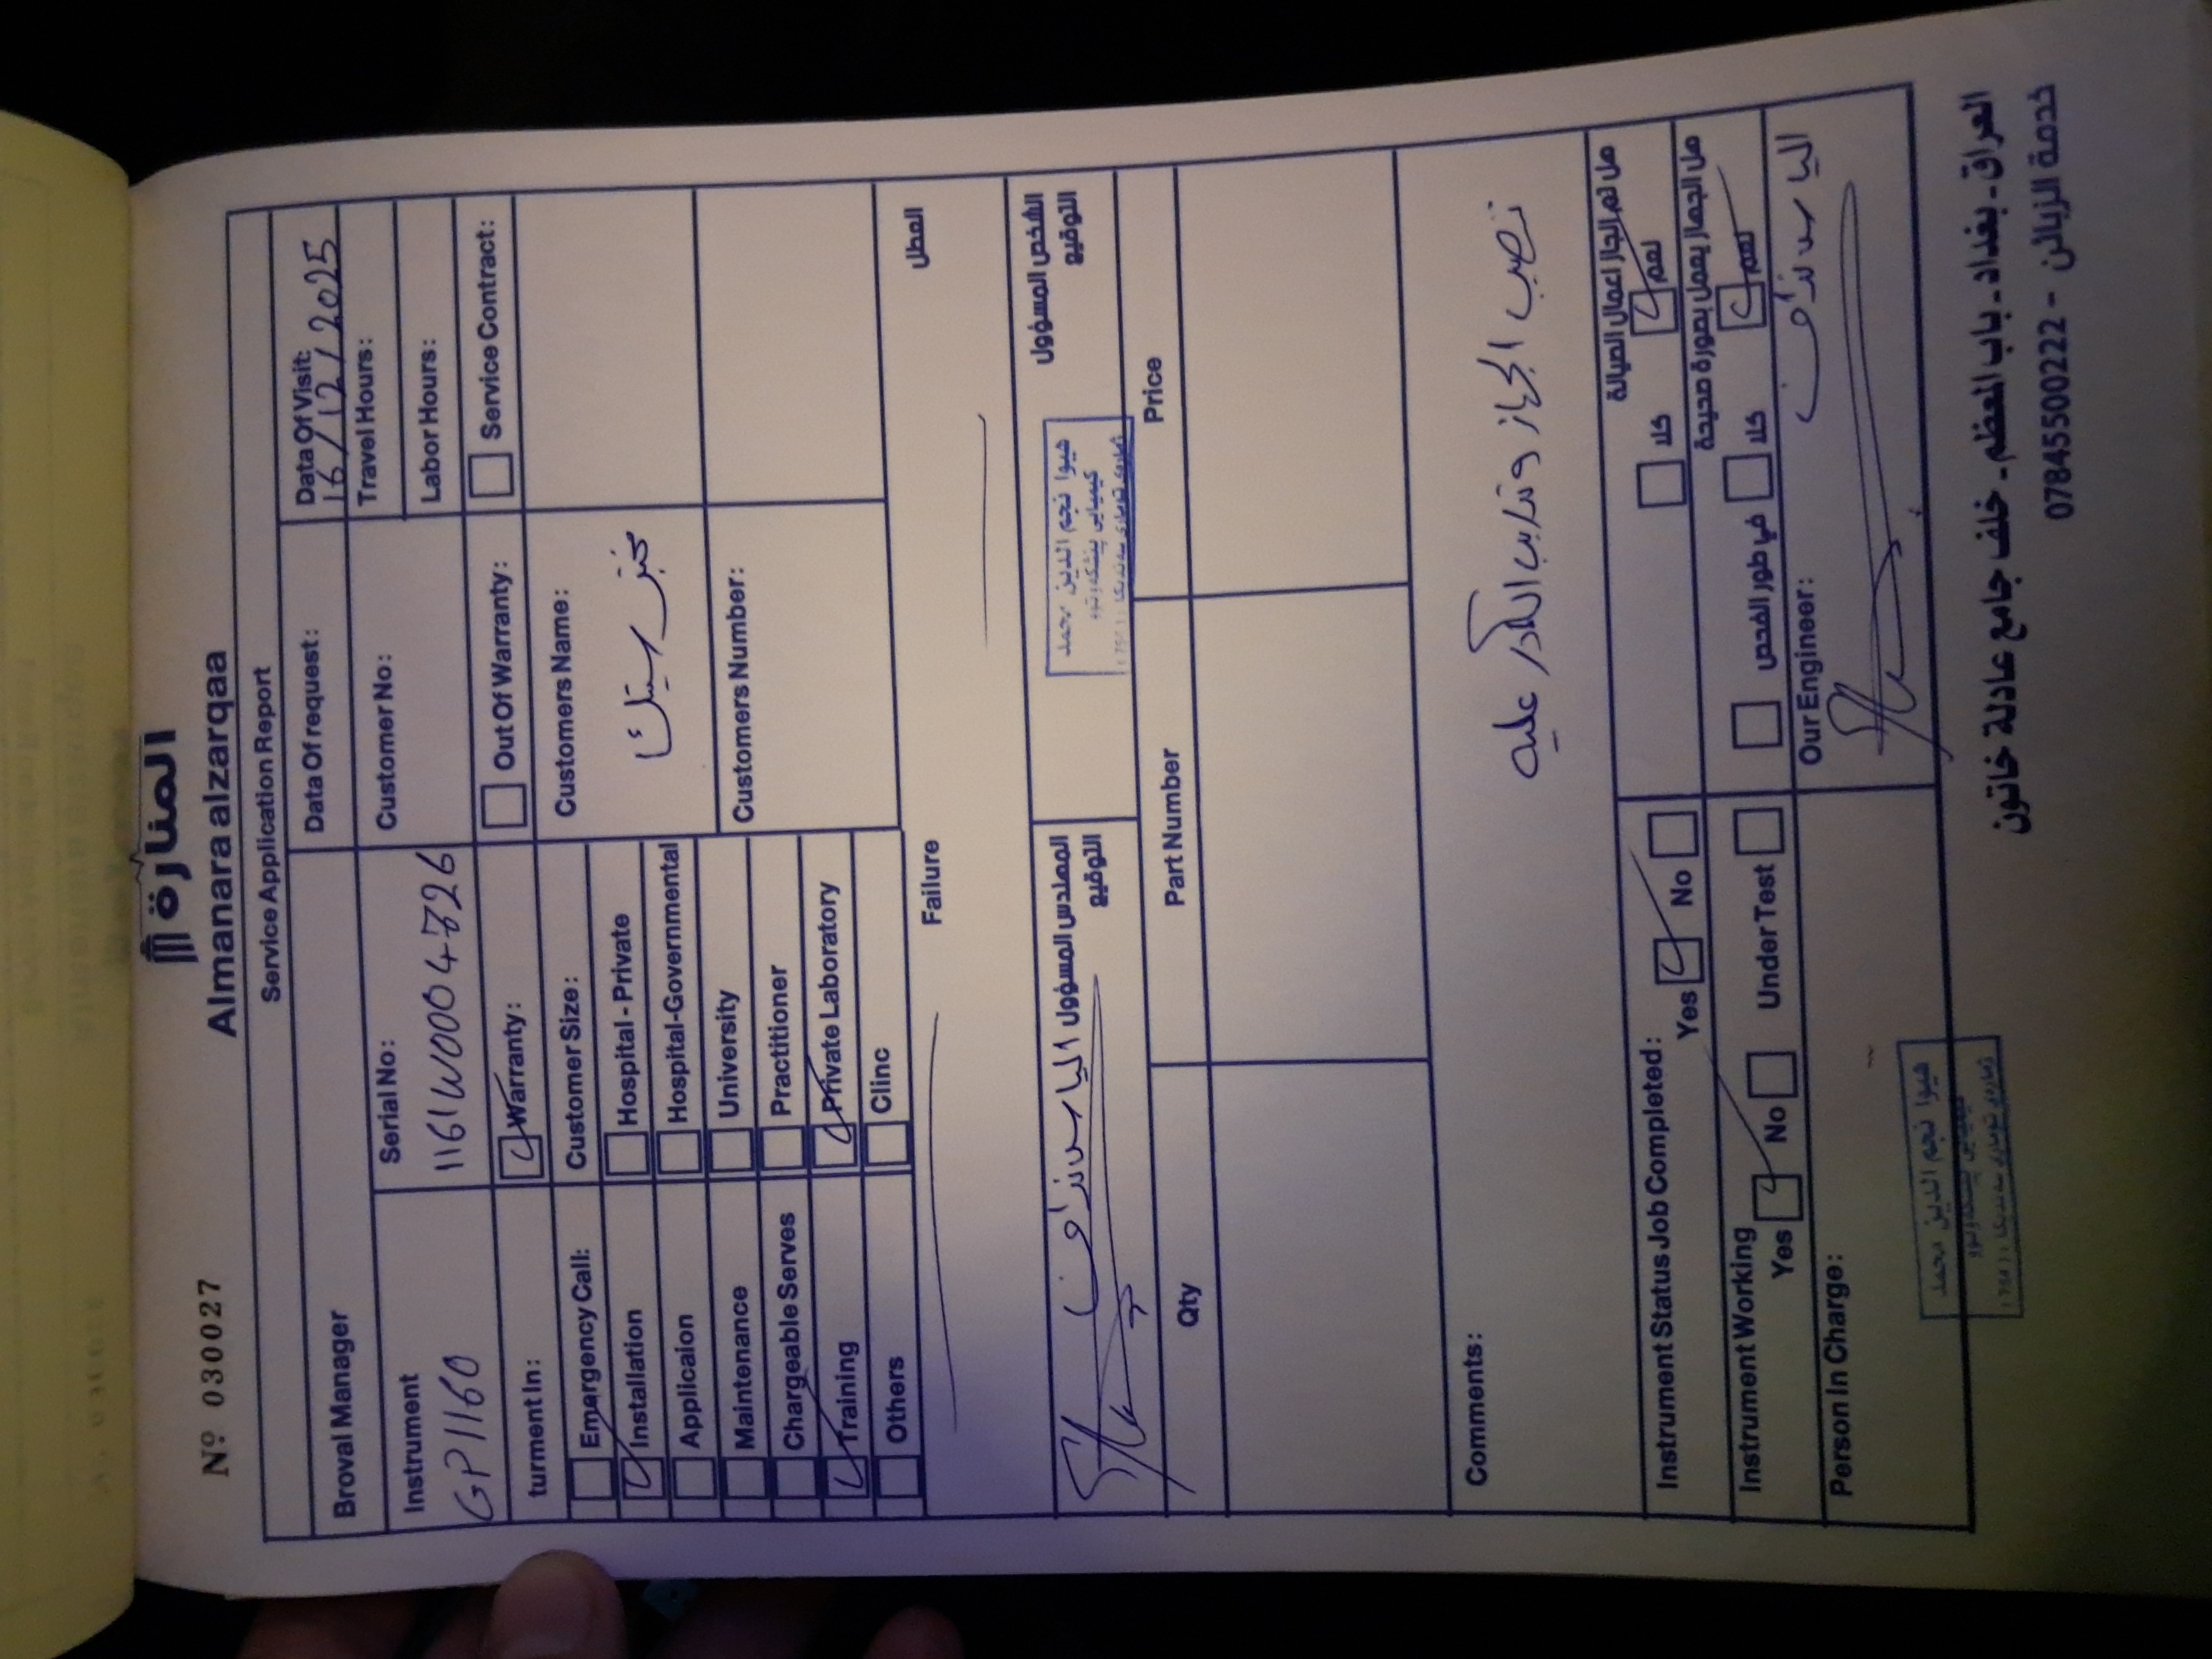 Nº 030027
المنارة
Almanara alzarqaa
Service Application Report
Broval Manager
Data Of request:
Data Of Visit:
16/12/2025
Instrument
GP1160
Serial No:
1161W0004726
Customer No:
Travel Hours:
Labor Hours:
turment In:
Warranty:
Out Of Warranty:
Service Contract:
Emergency Call:
Installation
Applicaion
Maintenance
Chargeable Serves
Training
Others
Customer Size:
Hospital - Private
Hospital-Governmental
University
Practitioner
Private Laboratory
Clinc
Customers Name:
مختبر
Customers Number:
Failure
العطل
المهندس المسؤول
التوقيع
الشخص المسؤول
التوقيع
هيوا نجم الدين محمد
Qty
Part Number
Price
Comments:
نصب الجهاز وتدريب الكادر عليه
Instrument Status Job Completed:
Yes
No
كلا
نعم
Instrument Working
Yes
No
Under Test
في طور الفحص
كلا
نعم
هل الجهاز يعمل بصورة صحيحة
Person In Charge:
هيوا نجم الدين محمد
Our Engineer:
العراق - بغداد - باب المعظم - خلف جامع عادلة خاتون
خدمة الزبائن - 07845500222